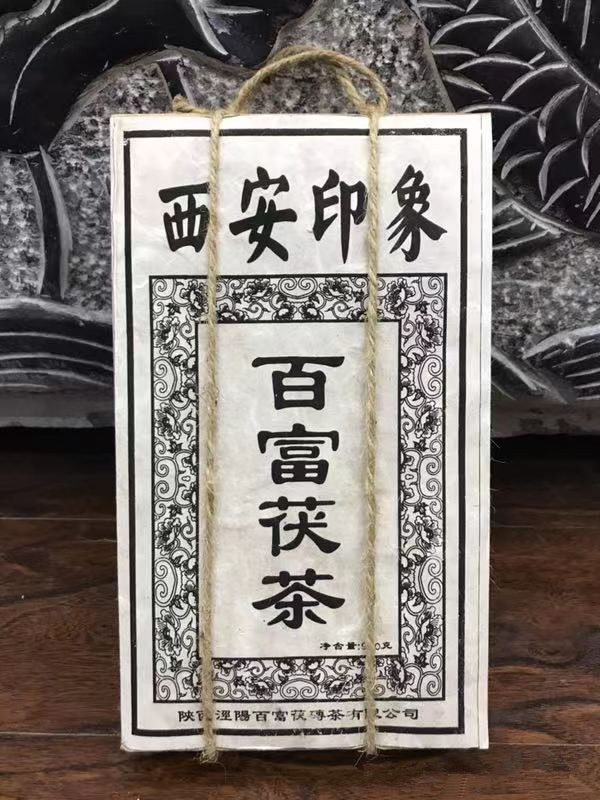 西安印象
百富茯茶
净含量:9 0克
陕西涇陽百富茯磚茶有限公司